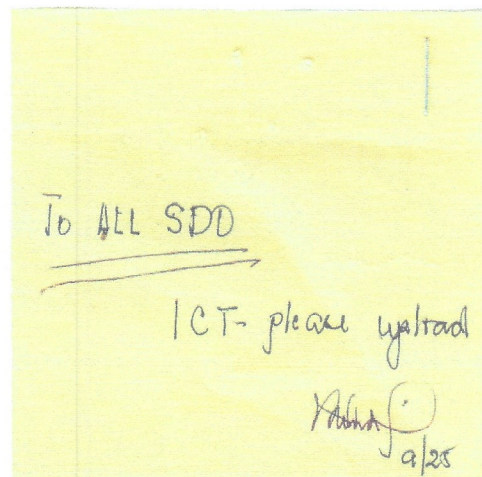 To ALL SDD
ICT- please upload
9/25